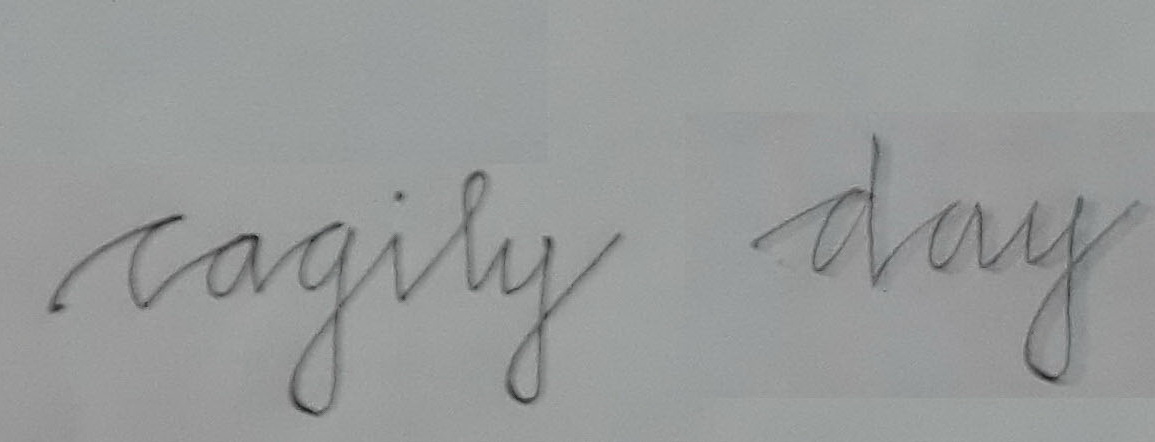 cagily day